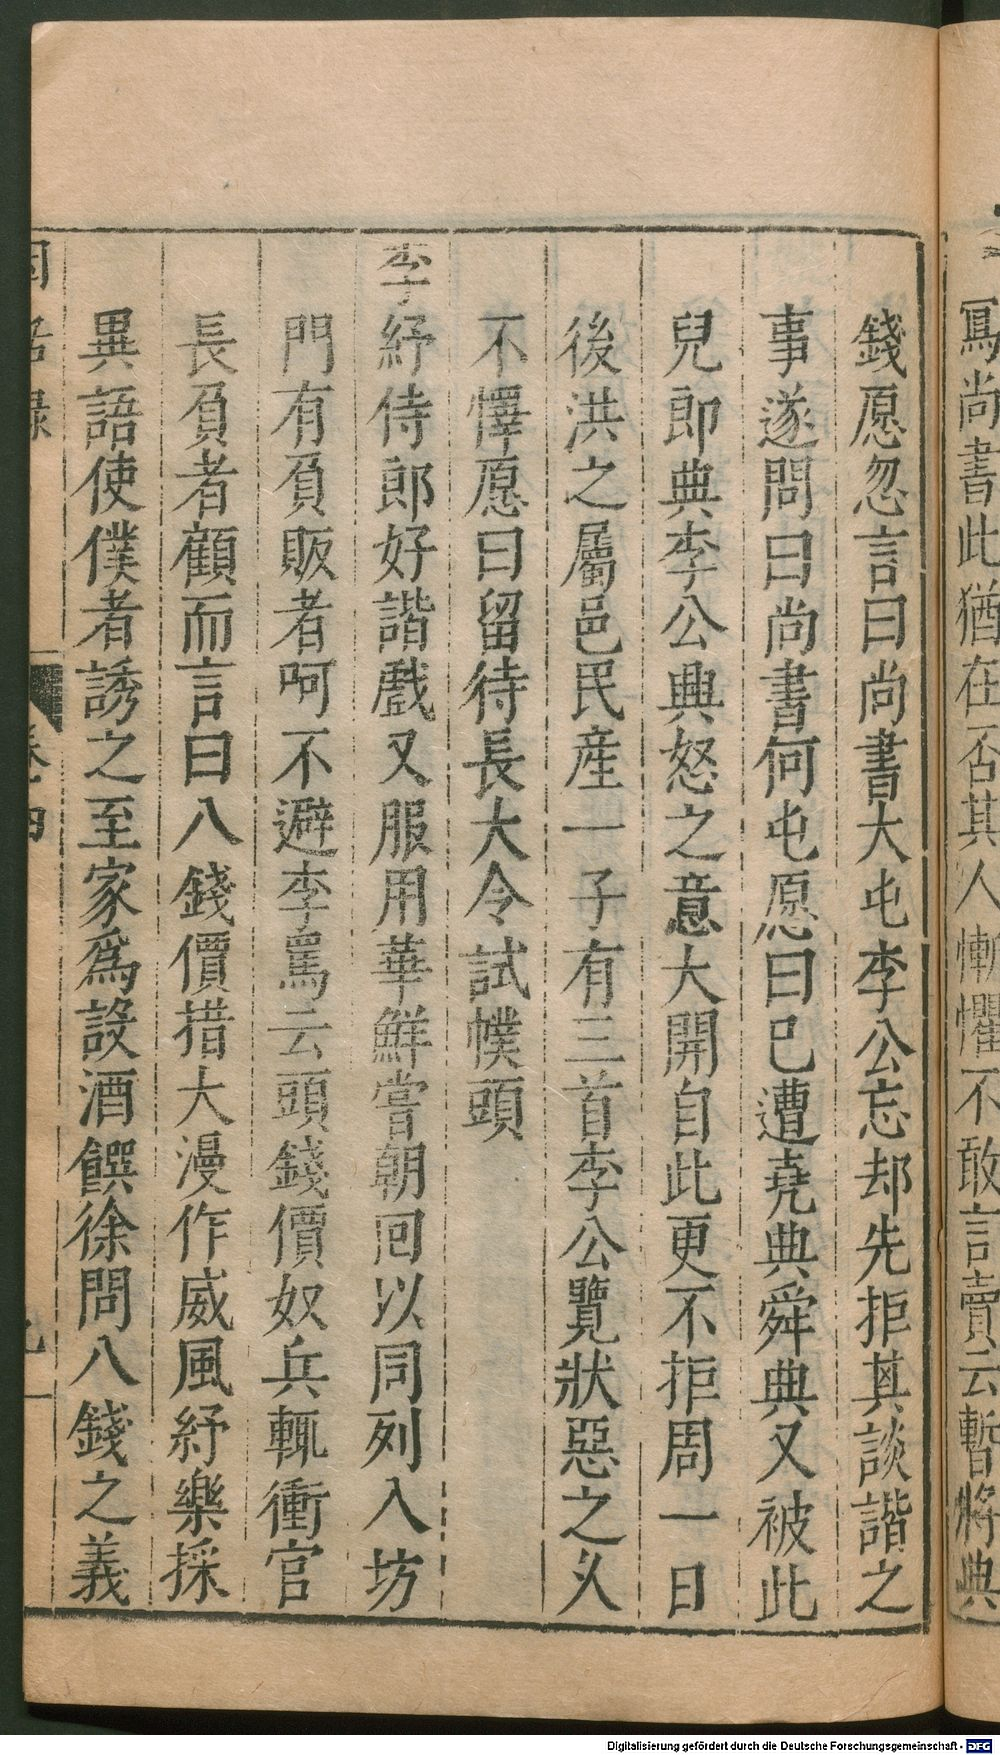 寫尚書此猶在否其人慚懼不敢言賣云暫將典
錢愿忽言曰尚書大屯李公忘却先拒其談諧之
事遂問曰尚書何屯愿曰已遭堯典舜典又被此
兒郎典李公興怒之意大開自此更不拒周一日
後洪之屬邑民產一子有三首李公覽狀惡之久
不懌愿曰留待長大令試幞頭
李紓侍郎好諧戲又服用華鮮嘗朝回以同列入坊
門有負販者呵不避李罵云頭錢價奴兵輒衝官
長負者顧而言曰八錢價措大漫作威風紓樂採
異語使僕者誘之至家為設酒饌徐問八錢之義
因話錄 卷四 九
Digitalisierung gefördert durch die Deutsche Forschungsgemeinschaft - DFG